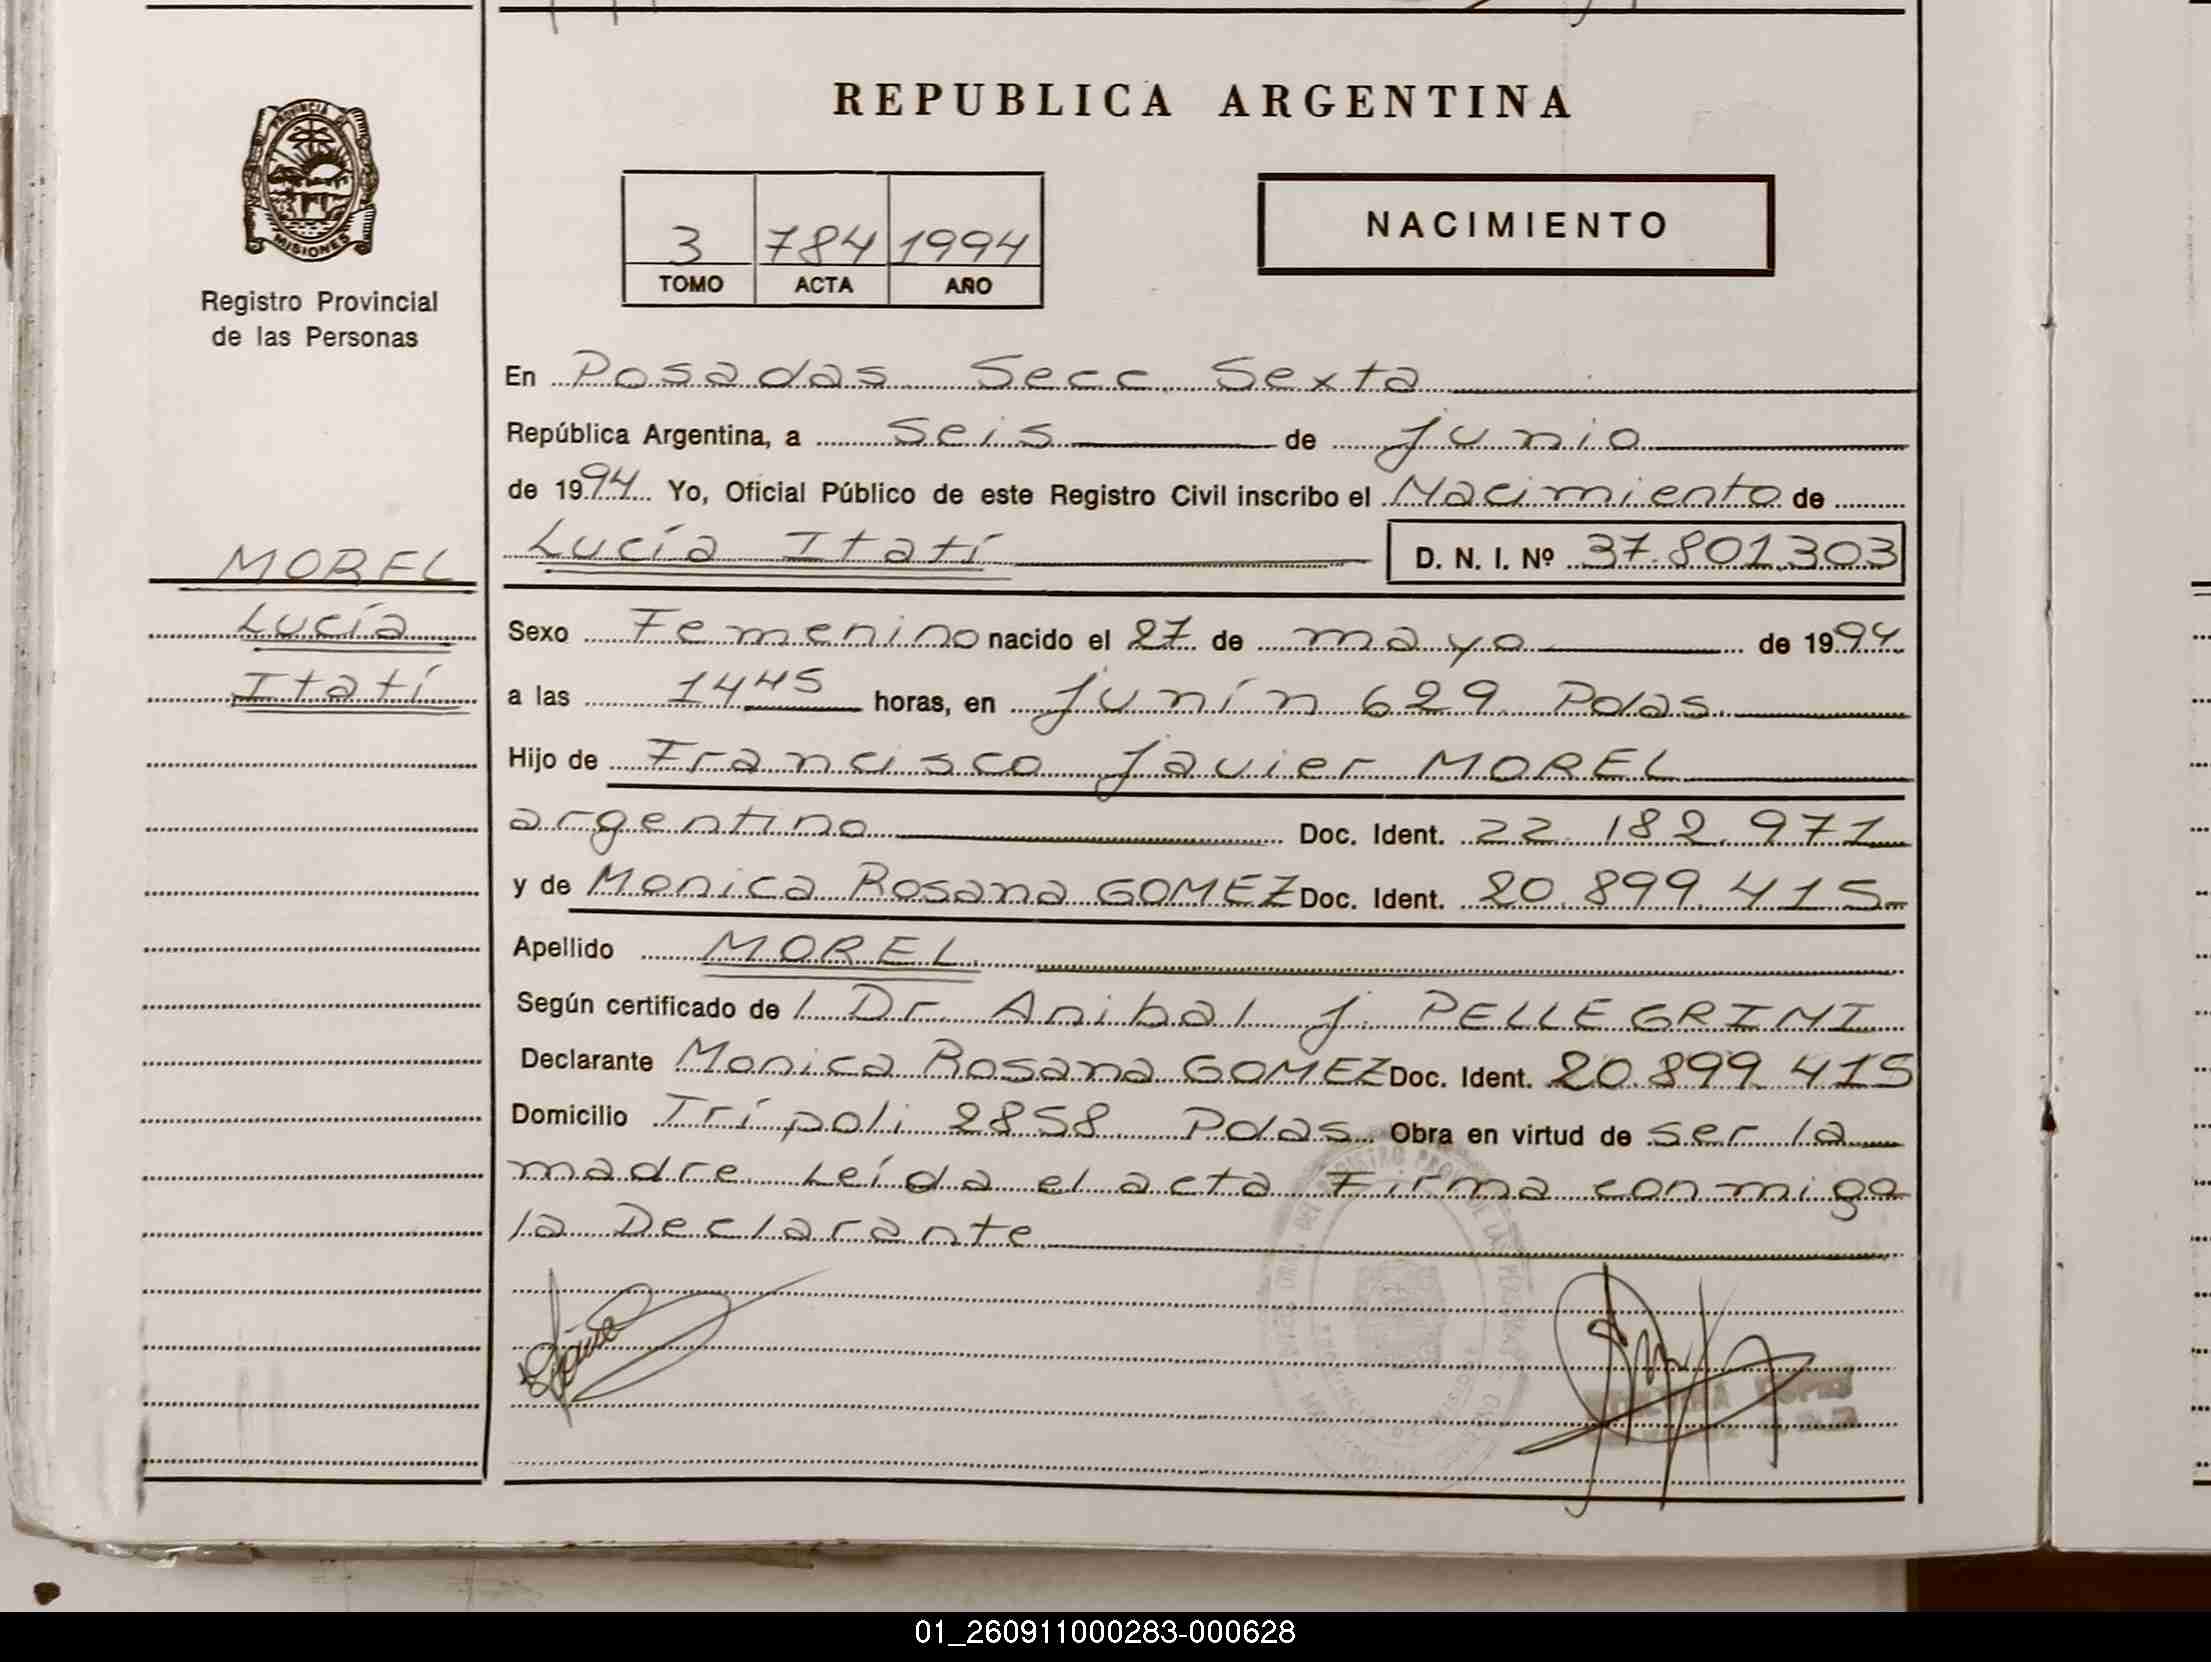 PROVINCIA DE
MISIONES
Registro Provincial
de las Personas
MOREL
Lucía
Itatí
REPUBLICA ARGENTINA
3 784 1994
TOMO ACTA AÑO
NACIMIENTO
En Posadas Secc. Sexta
República Argentina, a seis de junio
de 1994 Yo, Oficial Público de este Registro Civil inscribo el Nacimiento de
Lucía Itatí D. N. I. Nº 37.801.303
Sexo Femenino nacido el 27 de mayo de 1994
a las 14 45 horas, en Junín 629 Pdas.
Hijo de Francisco Javier MOREL
argentino Doc. Ident. 22.182.971
y de Monica Rosana GOMEZ Doc. Ident. 20.899.415
Apellido MOREL
Según certificado de l Dr. Anibal J. PELLEGRINI
Declarante Monica Rosana GOMEZ Doc. Ident. 20.899.415
Domicilio Trípoli 2858 Pdas. Obra en virtud de ser la
madre. Leída el acta Firma conmigo
la Declarante
01_260911000283-000628